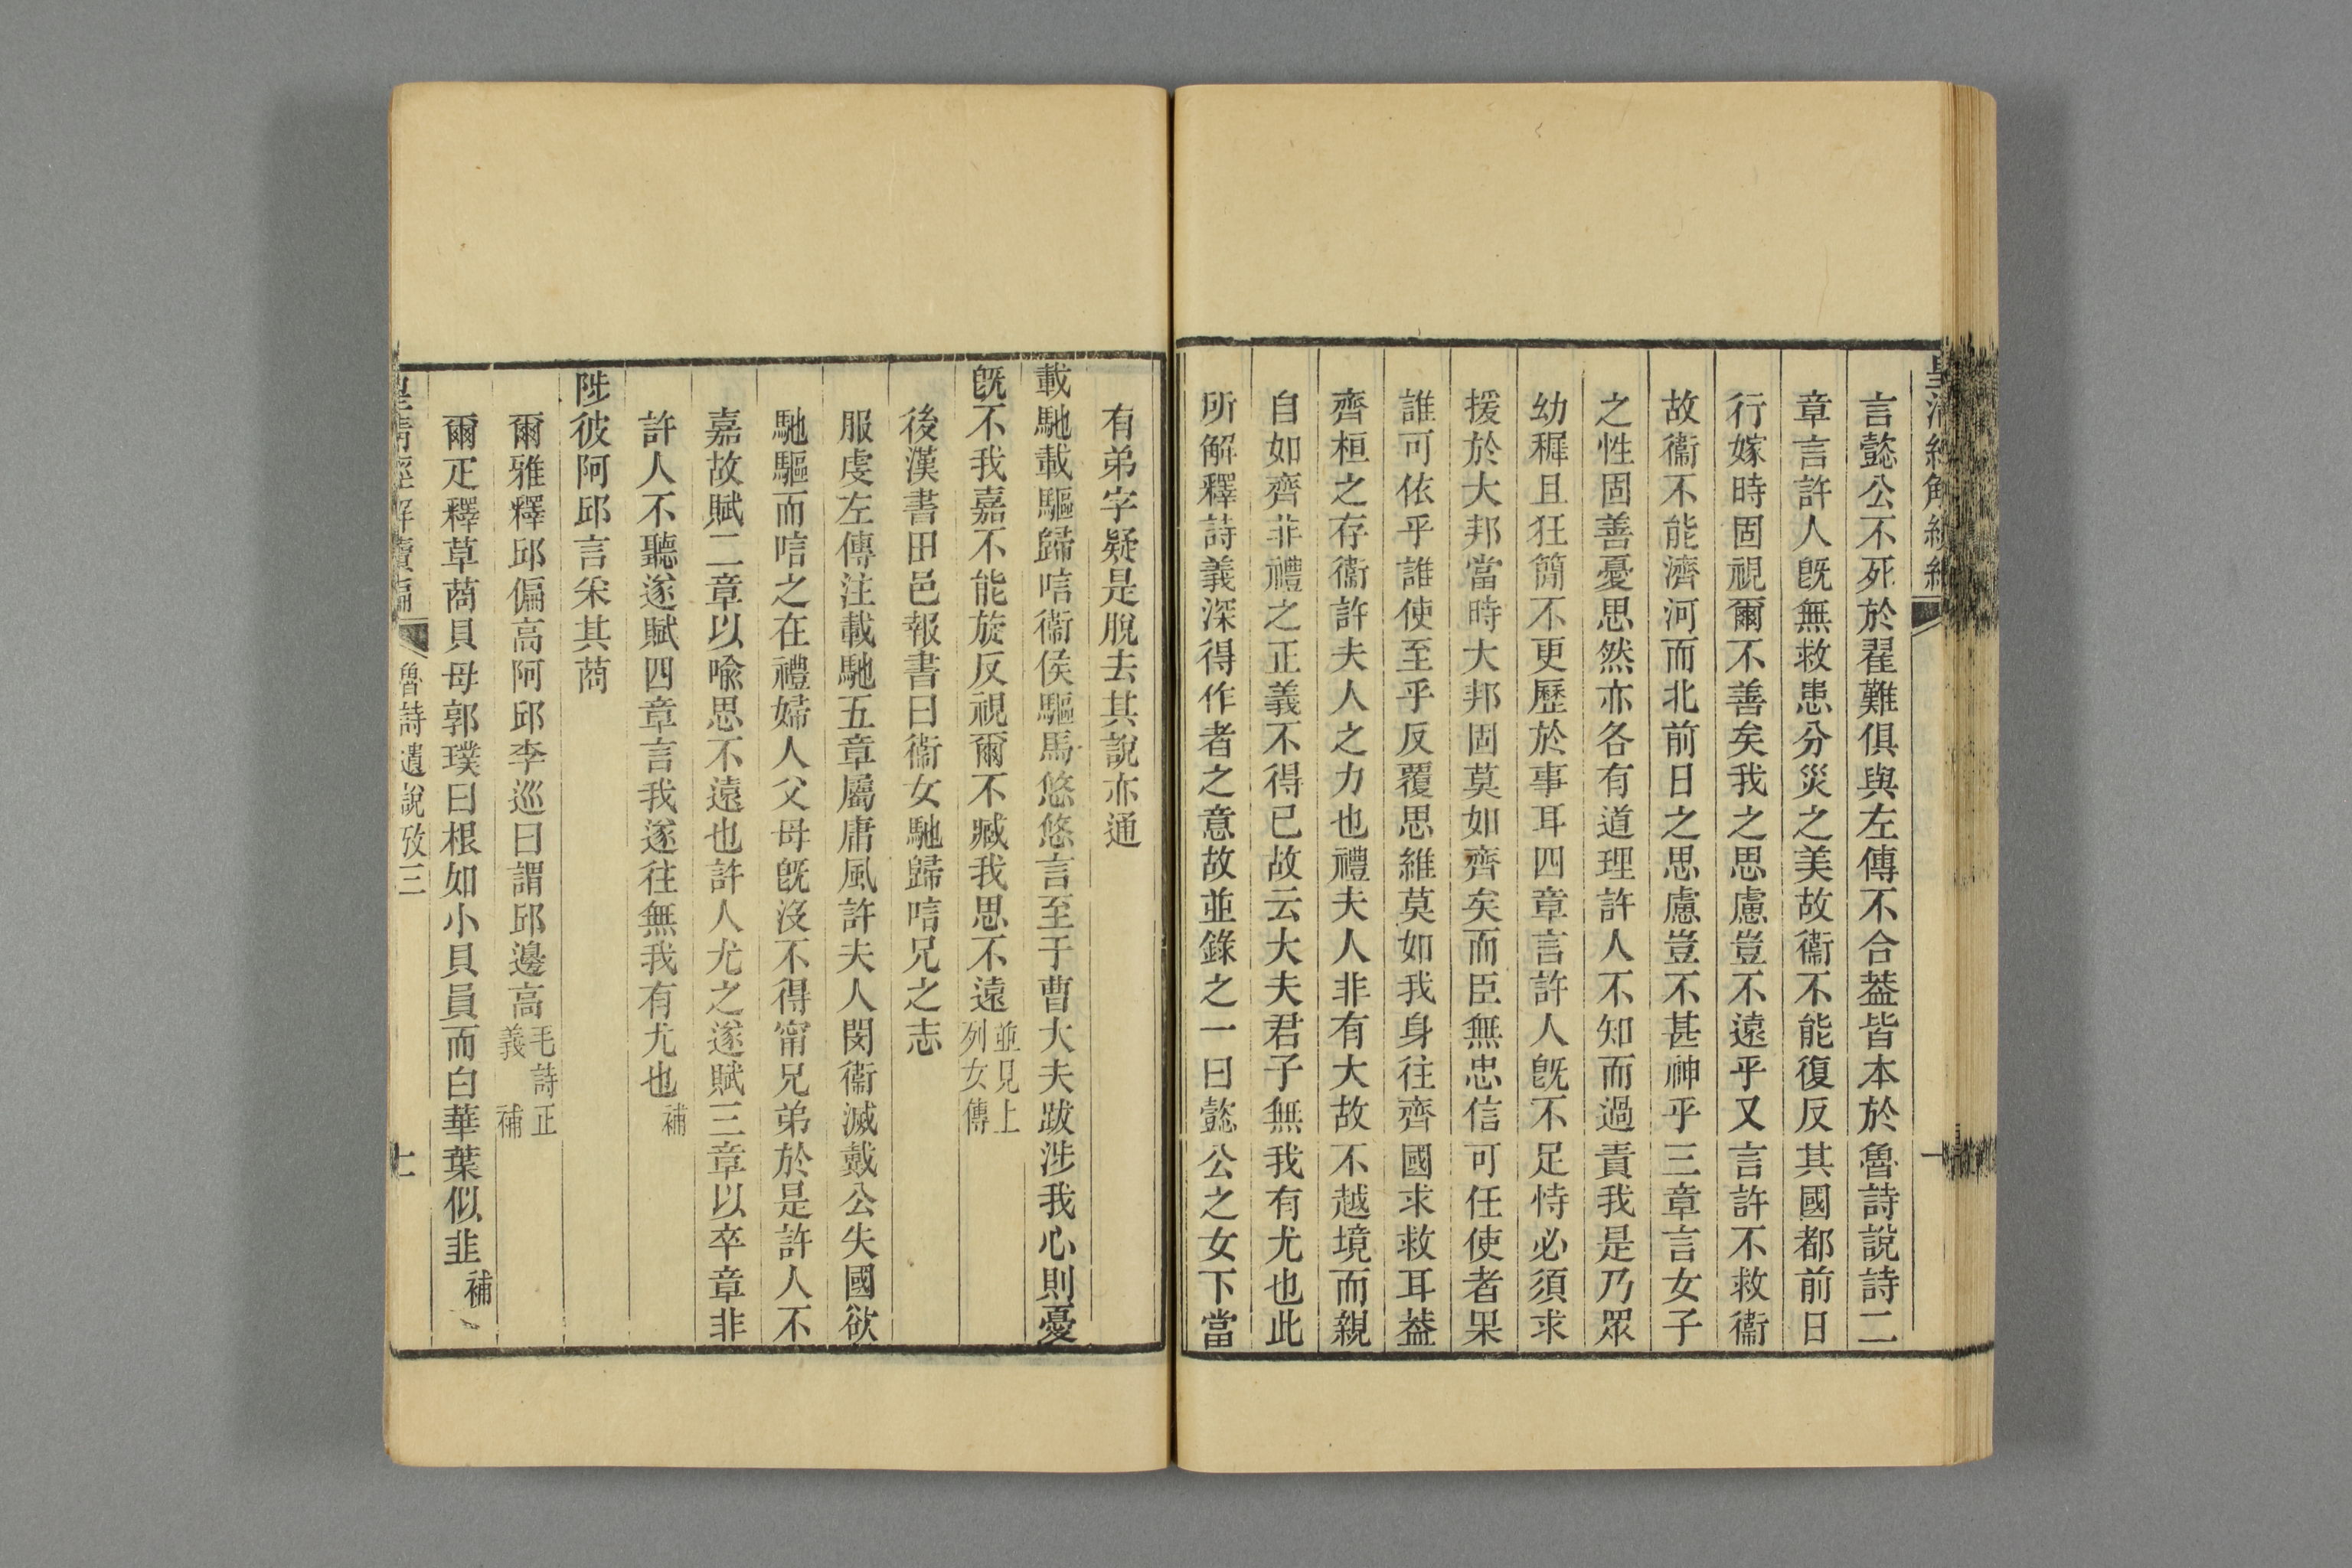 皇清經解續編
言懿公不死於翟難俱與左傳不合葢皆本於魯詩說詩二
章言許人旣無救患分災之美故衞不能復反其國都前日
行嫁時固視爾不善矣我之思慮豈不遠乎又言許不救衞
故衞不能濟河而北前日之思慮豈不甚神乎三章言女子
之性固善憂思然亦各有道理許人不知而過責我是乃眾
幼穉且狂簡不更歷於事耳四章言許人旣不足恃必須求
援於大邦當時大邦固莫如齊矣而臣無忠信可任使者果
誰可依乎誰使至乎反覆思維莫如我身往齊國求救耳葢
齊桓之存衞許夫人之力也禮夫人非有大故不越境而親
自如齊非禮之正義不得已故云大夫君子無我有尤也此
所解釋詩義深得作者之意故並錄之一曰懿公之女下當
有弟字疑是脫去其說亦通
載馳載驅歸唁衞侯驅馬悠悠言至于曹大夫跋涉我心則憂
旣不我嘉不能旋反視爾不臧我思不遠並見上列女傳
後漢書田邑報書曰衞女馳歸唁兄之志
服虔左傳注載馳五章屬庸風許夫人閔衞滅戴公失國欲
馳驅而唁之在禮婦人父母旣沒不得甯兄弟於是許人不
嘉故賦二章以喩思不遠也許人尤之遂賦三章以卒章非
許人不聽遂賦四章言我遂往無我有尤也補
陟彼阿邱言采其莔
爾雅釋邱偏高阿邱李巡曰謂邱邊高毛詩正義 補
爾疋釋草莔貝母郭璞曰根如小貝員而白華葉似韭補
皇清經解續編 魯詩遺說攷三 七